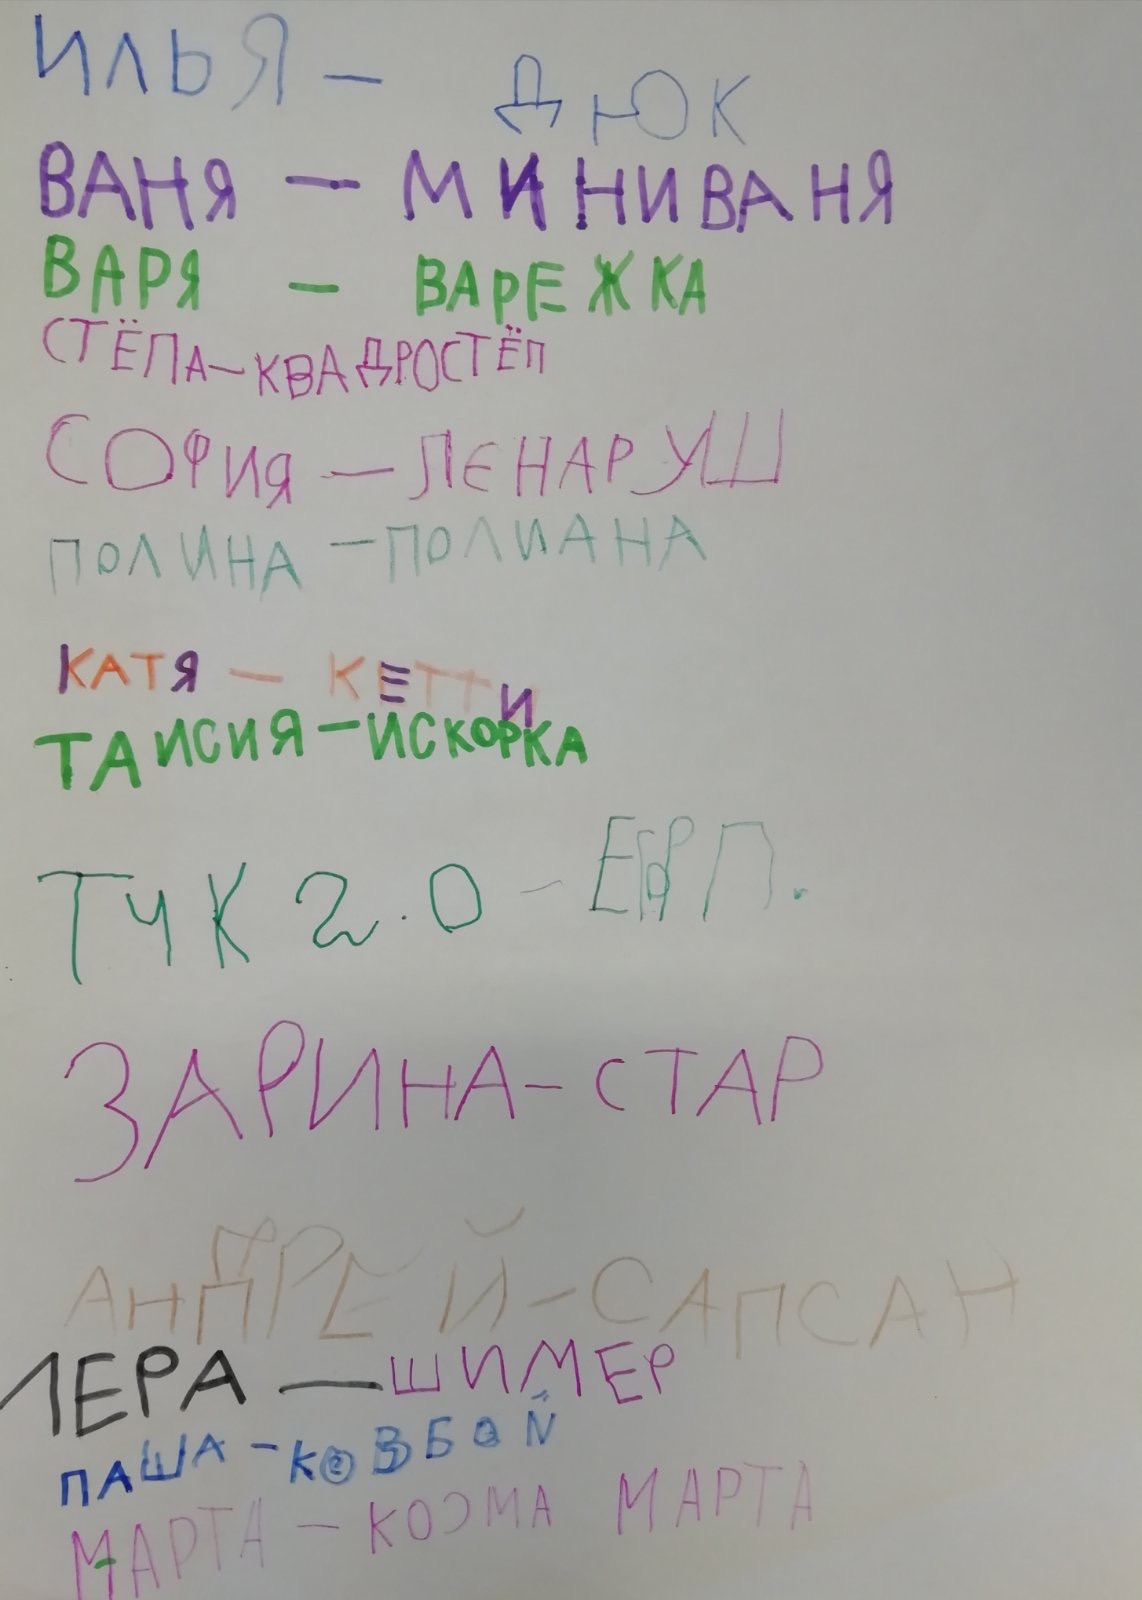 ИЛЬЯ – ДЮК
ВАНЯ – МИНИВАНЯ
ВАРЯ – ВАРЕЖКА
СТЁПА – КВАДРОСТЁП
СОФИЯ – ЛЕНАРУШ
ПОЛИНА – ПОЛИАНА
КАТЯ – КЕТТИ
ТАИСИЯ – ИСКОРКА
ТЧК 2.0 –
ЗАРИНА – СТАР
АНДРЕЙ – САПСАН
ЛЕРА – ШИМЕР
ПАША – КОВБОЙ
МАРТА – КОЭМА МАРТА